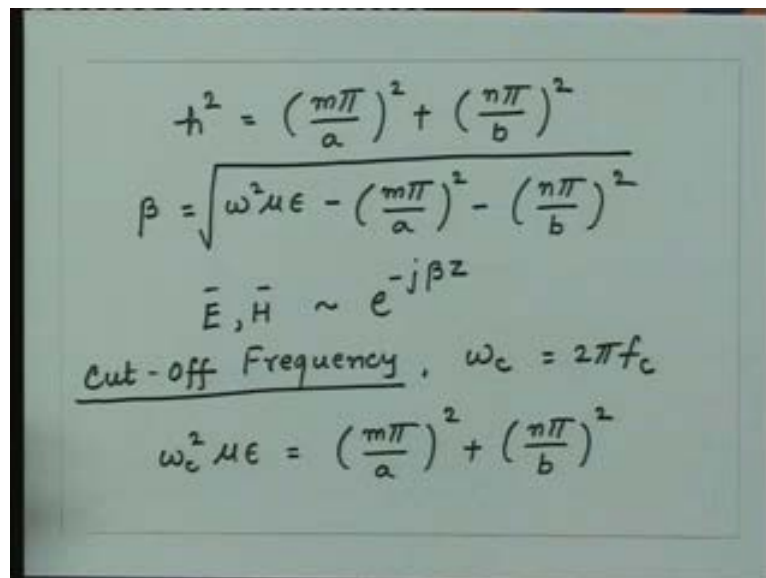 h² = (mπ/a)² + (nπ/b)²
β = √(ω²μϵ - (mπ/a)² - (nπ/b)²)
Ē, H̄ ~ e^(-jβz)
Cut-off Frequency, ω_c = 2πf_c
ω_c² μϵ = (mπ/a)² + (nπ/b)²